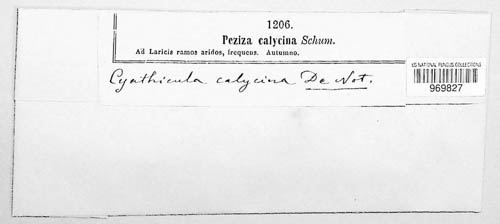 1206.
Peziza calycina Schum.
Ad Laricis ramos aridos, frequens. Autumno.
Cyathicula calycina De Not.
US NATIONAL FUNGUS COLLECTIONS
969827